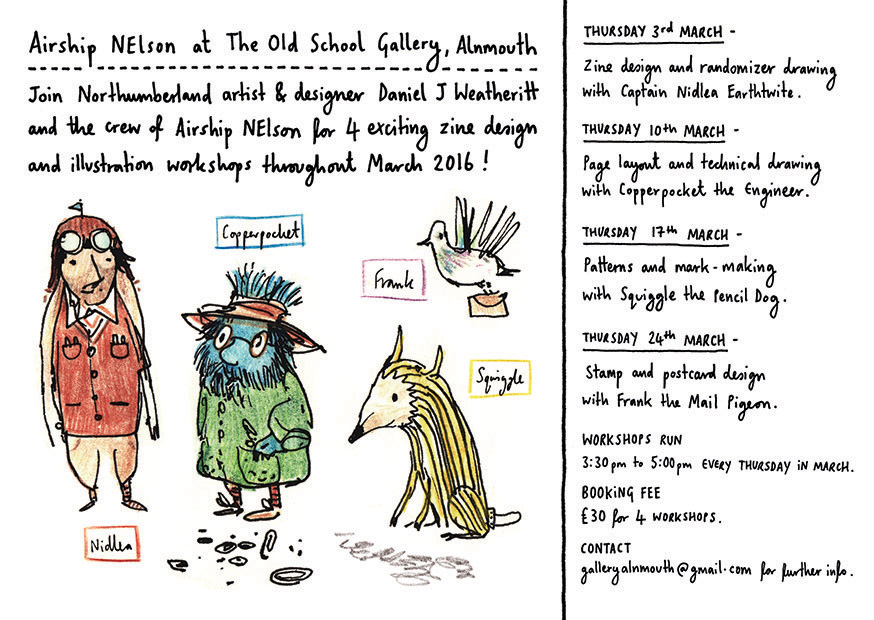 Airship NElson at The Old School Gallery, Alnmouth
Join Northumberland artist & designer Daniel J Weatheritt
and the crew of Airship NElson for 4 exciting zine design
and illustration workshops throughout March 2016 !
Copperpocket
Frank
Squiggle
Nidlea
THURSDAY 3rd MARCH -
Zine design and randomizer drawing
with Captain Nidlea Earthtwite.
THURSDAY 10th MARCH -
Page layout and technical drawing
with Copperpocket the Engineer.
THURSDAY 17th MARCH -
Patterns and mark-making
with Squiggle the Pencil Dog.
THURSDAY 24th MARCH -
Stamp and postcard design
with Frank the Mail Pigeon.
WORKSHOPS RUN
3:30pm to 5:00pm EVERY THURSDAY IN MARCH.
BOOKING FEE
£30 for 4 WORKSHOPS.
CONTACT
galleryalnmouth@gmail.com for further info.